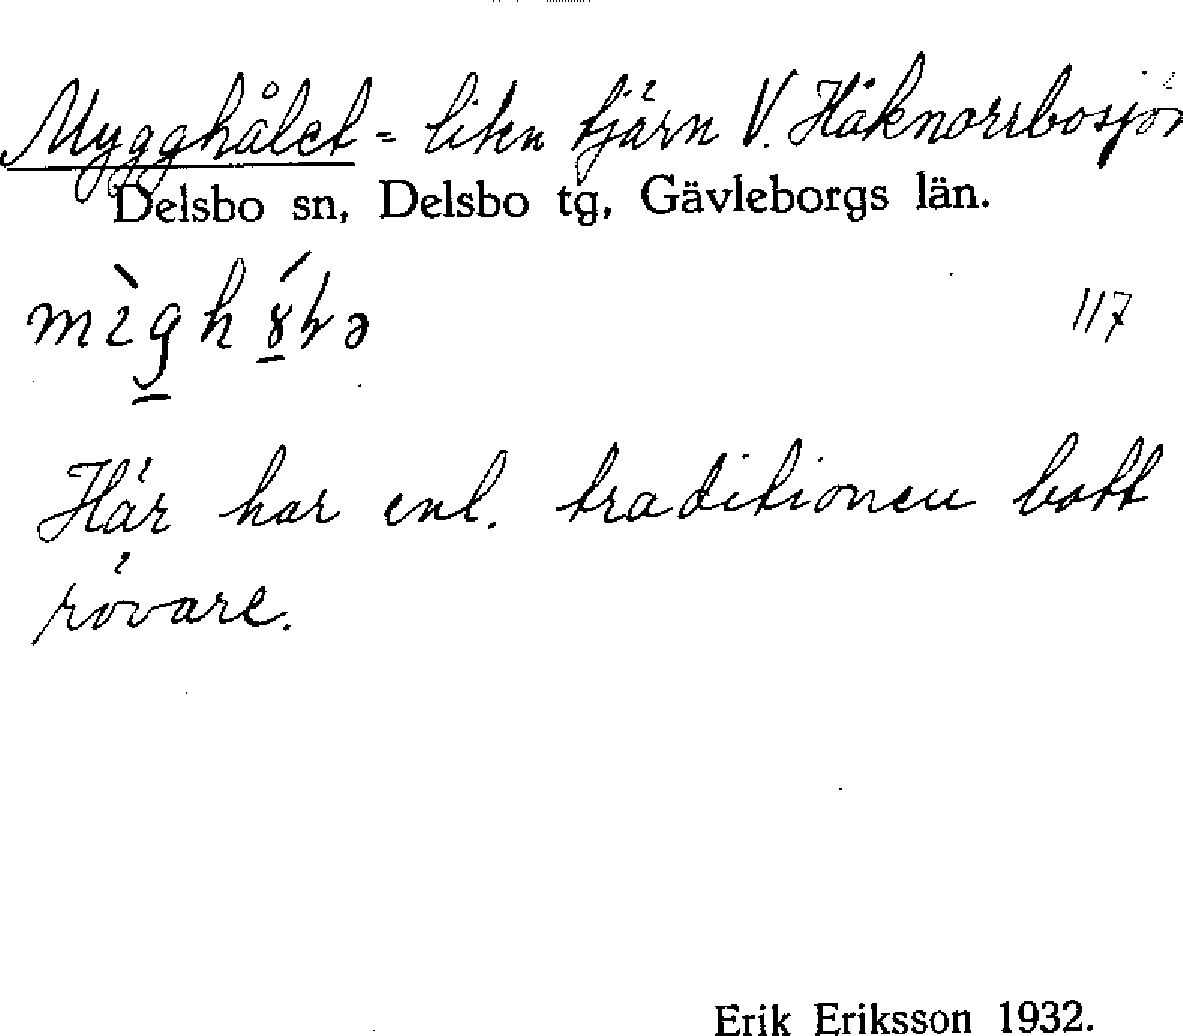 Mygghålet = liten tjärn V. Häknorrbosjön
Delsbo sn, Delsbo tg, Gävleborgs län.
117
Här har enl. traditionen bott
rövare.
Erik Eriksson 1932.